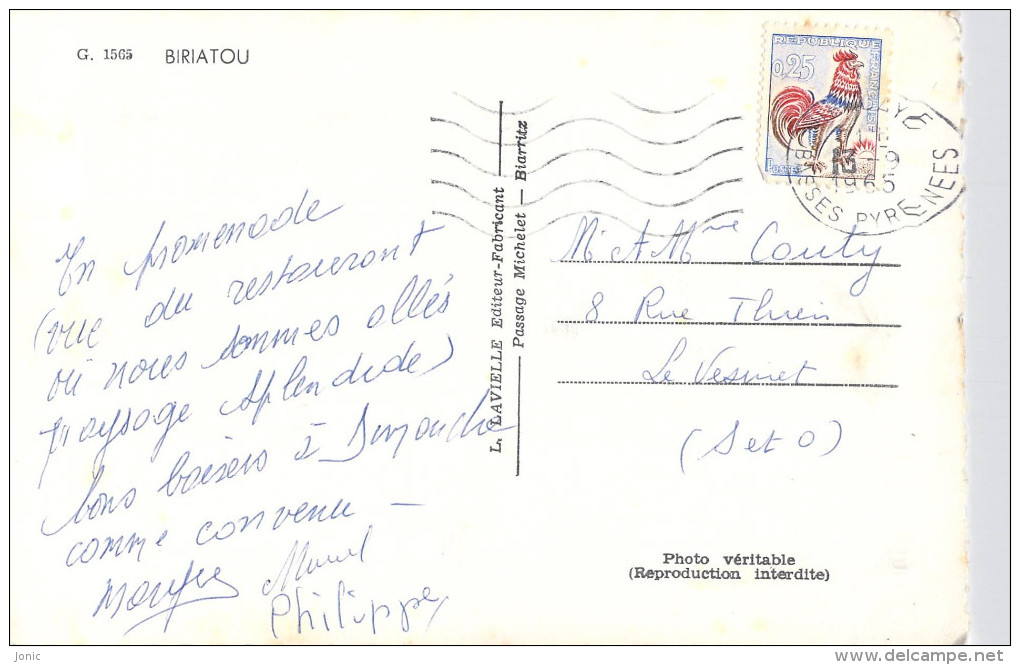 G. 1565 BIRIATOU
REPUBLIQUE FRANCAISE
0,25
POSTES
1965
BSES PYRENEES
En promenade
(vue du restaurant
où nous sommes allés
paysage splendide)
bons baisers à Dimanche
comme convenu —
Philippe
L. LAVIELLE Editeur-Fabricant
Passage Michelet — Biarritz
M. & Mme Couty
8 Rue Thiers
Le Vesinet
(S et O)
Photo véritable
(Reproduction interdite)
Jonic
delcampe.net